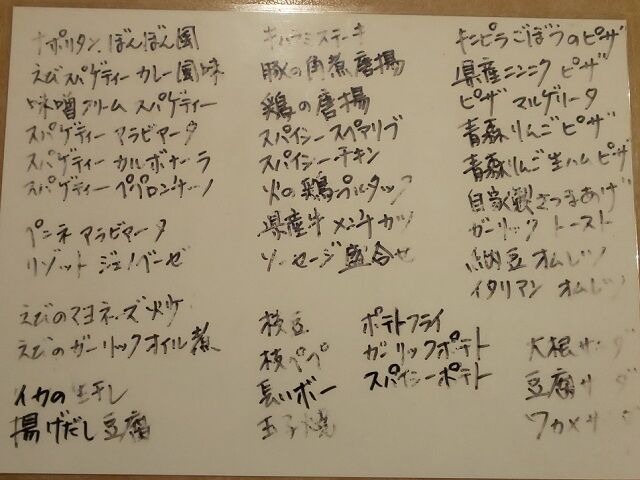 ナポリタン ぼんぼん風
えびスパゲティー カレー風味
味噌クリーム スパゲティー
スパゲティー アラビアータ
スパゲティー カルボナーラ
スパゲティー ペペロンチーノ
ペンネ アラビアータ
リゾット ジェノベーゼ
えびのマヨネーズ炒ケ
えびのガーリックオイル煮
イカの生干し
揚げだし豆腐
牛ハラミステーキ
豚の角煮唐揚
鶏の唐揚
スパイシースペアリブ
スパイシーチキン
火の鶏
県産牛 メンチカツ
ソーセージ盛合せ
枝豆
枝ペペ
長いボー
玉子焼
ポテトフライ
ガーリックポテト
スパイシーポテト
キンピラごぼうのピザ
県産ニンニク ピザ
ピザ マルゲリータ
青森りんごピザ
青森りんご生ハムピザ
自家製さつまあげ
ガーリック トースト
納豆オムレツ
イタリアン オムレツ
大根サラダ
豆腐サラダ
ワカメサ